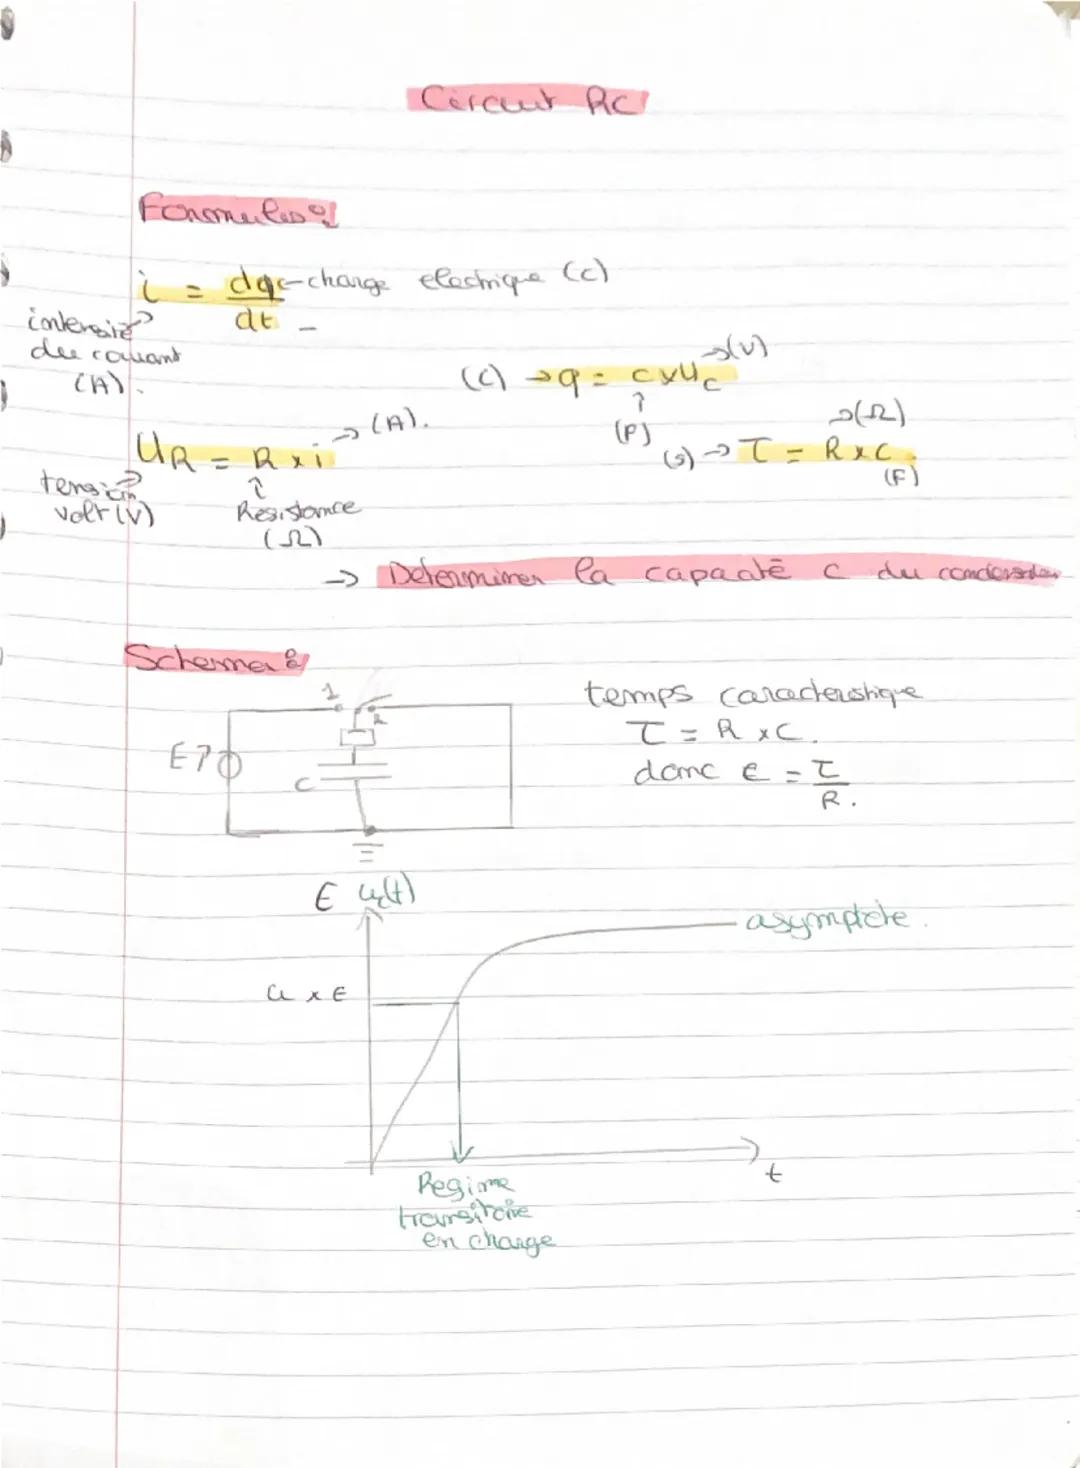 Circuit RC
Formules :
i = dq/dt ← charge electrique (C)
intensité du courant (A).
(C) → q = C x Uc → (V)
(F)
UR = R x i → (A).
tension volt (V)
Resistance (Ω)
(s) → τ = R x C → (Ω)
(F)
→ Determiner la capacité C du condensateur
Schema :
1
2
E
C
temps caracteristique
τ = R x C.
donc C = τ/R.
E uc(t)
asymptote.
x E
t
Regime
transitoire
en charge